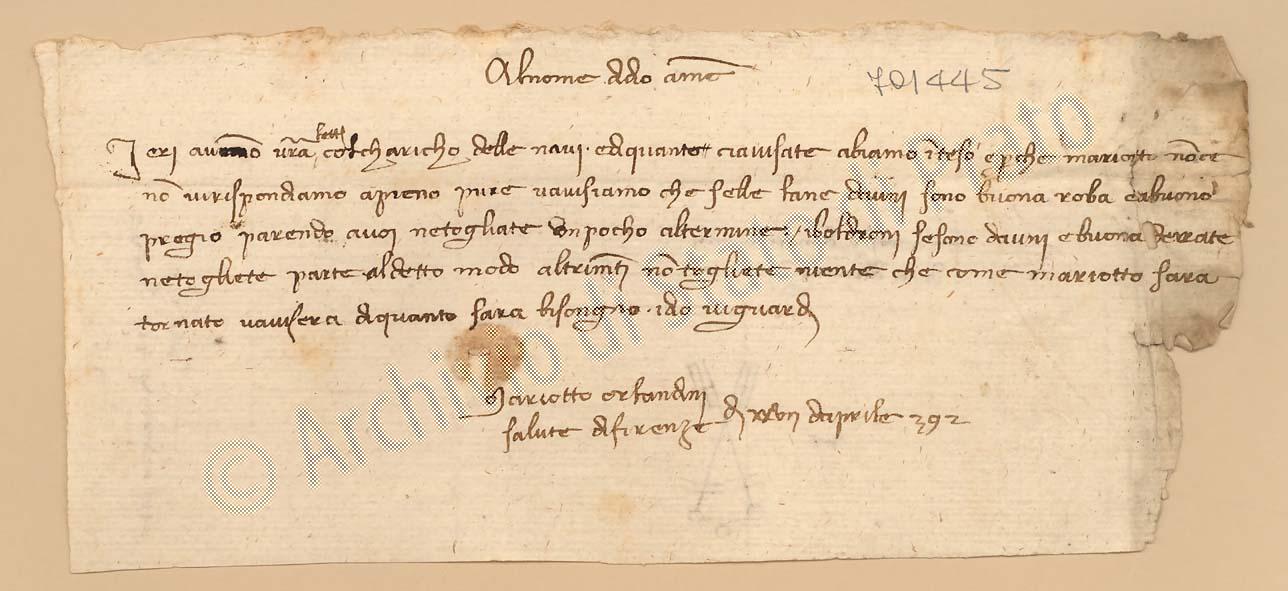 Al nome ddo ame
701445
lett
Ieri avemo vra col charicho delle navi. edquanto ciavisate abiamo inteso e perche mariotto no ce
no virispondamo apieno pure vavisiamo che selle lane divini sono buona roba e abuono
pregio parendo avoi netogliate un pocho altermine / iboldroni sesono davini e buona
netogliete parte aldetto modo altrimti no togliete niente che come mariotto sara
tornato vavisera dquanto sara bisongno. ido viguardi
Mariotto orlandini
salute dfirenze di xxvii daprile 392
© Archivio di Stato di Prato